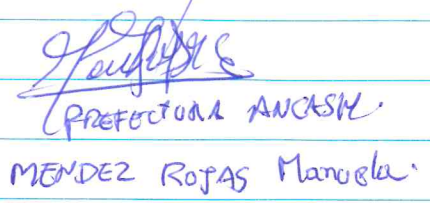 PREFECTURA ANCASH.
MENDEZ ROJAS Manuela.